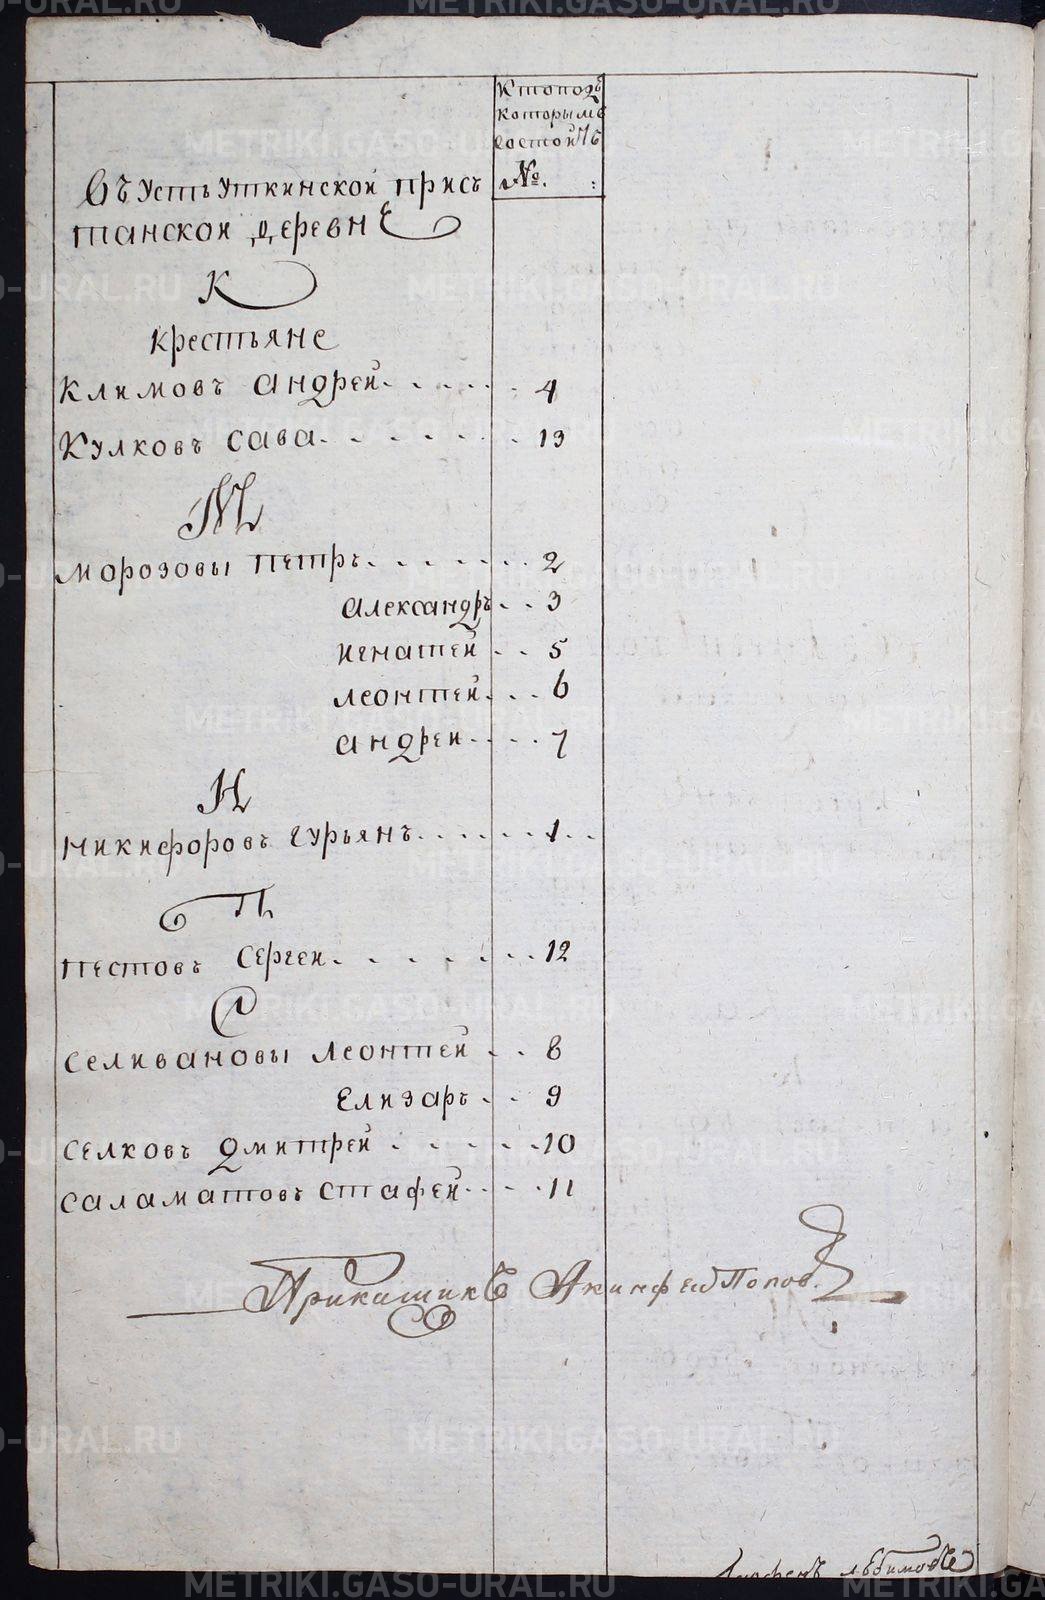 Кто подъ
которымъ
состоитъ
№.
Въ Усть Уткинской прис
танской деревнѣ
К
Крестьяне
Климовъ Андрей 4
Кулковъ Сава 13
М
Морозовы Петръ 2
Александръ 3
Игнатей 5
Леонтей 6
Андрей 7
Н
Никифоровъ Гурьянъ 1
П
Пестовъ Сергеи 12
С
Селивановы Леонтей 8
Елизаръ 9
Селковъ Дмитрей 10
Саламатовъ Стафей 11
Прикащикъ Акинфей Попов.
METRIKI.GASO-URAL.RU